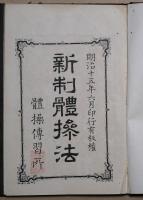 明治十五年六月印行有板權
新制體操法
體操傳習所